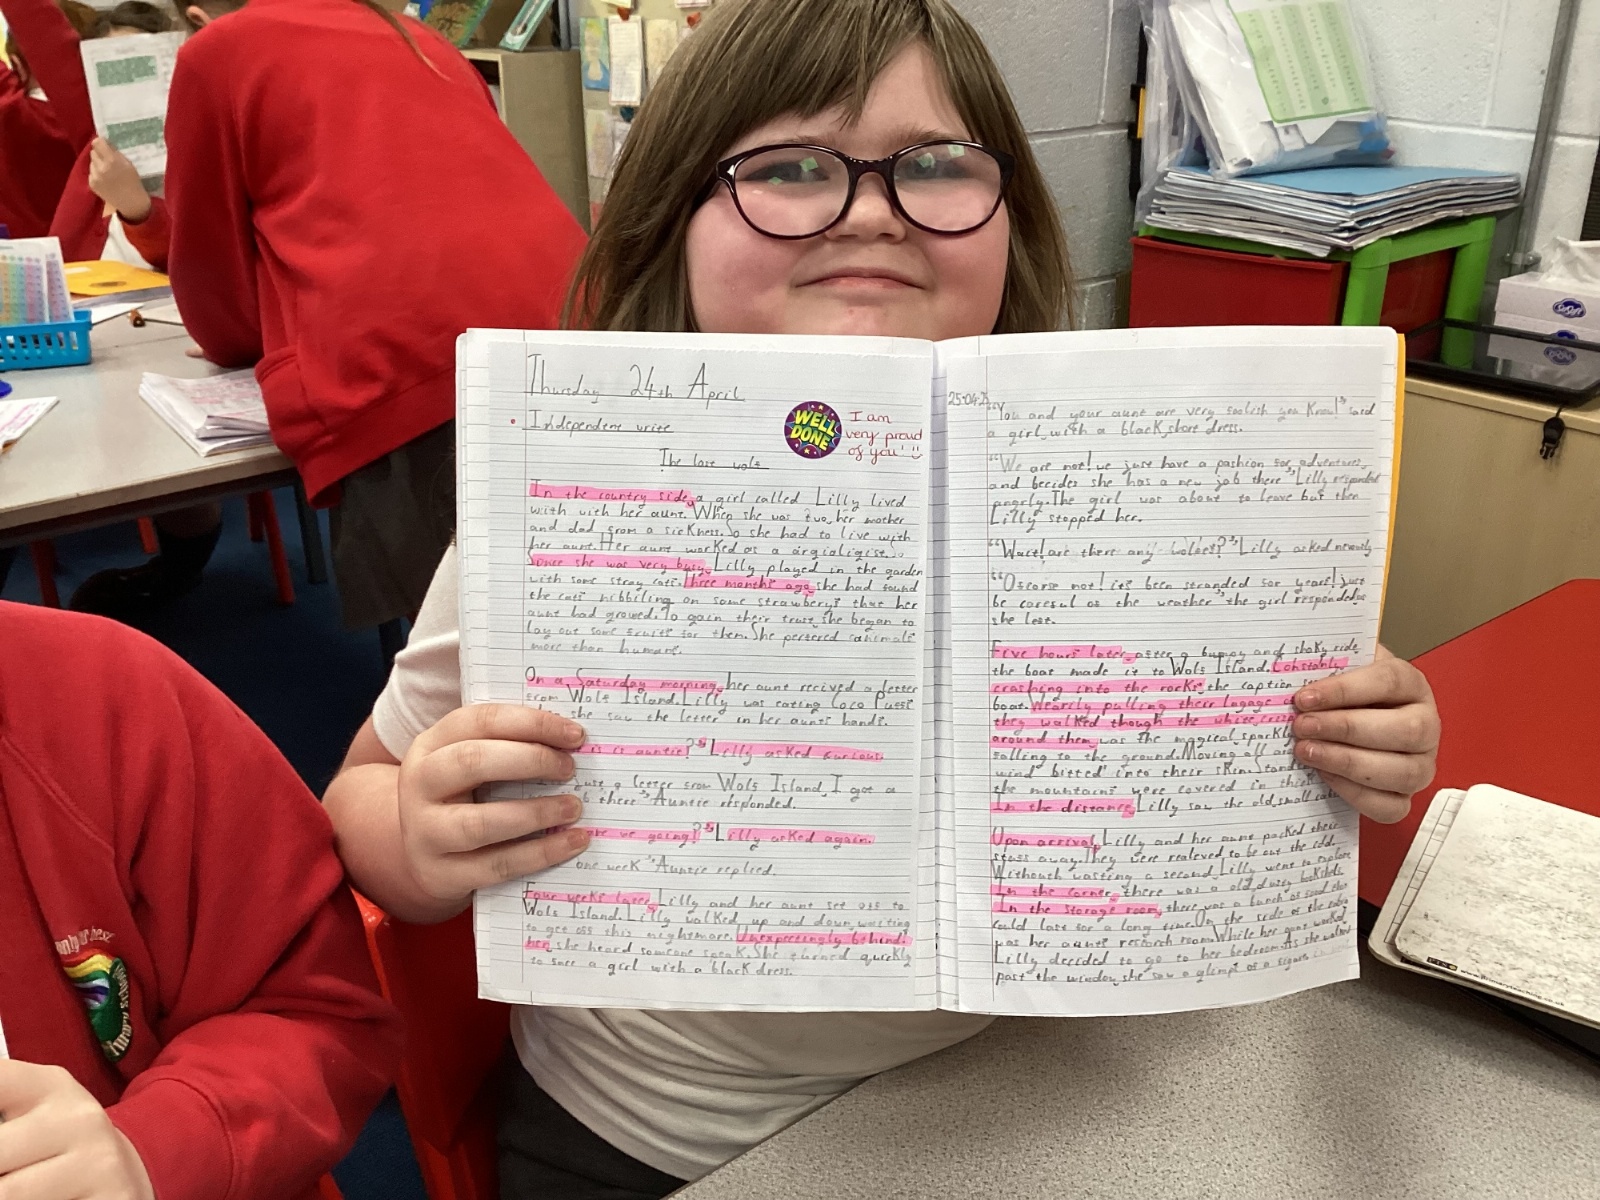 Thursday 24th April
Independent write
WELL DONE
I am
very proud
of you!
The lost wolf
In the country side, a girl called Lilly lived
with with her aunt. When she was two, her mother
and dad from a sickness. So she had to live with
her aunt. Her aunt worked as a argialigist.
Since she was very busy, Lilly played in the garden
with some stray cats. Three months ago, she had found
the cats nibbiling on some strawberys that her
aunt had growed. To gain their trust, she began to
lay out some fruits for them. She perfered animals
more than humans.
On a Saturday morning, her aunt recived a letter
from Wolf Island. Lilly was eating Coco Puffs
she saw the letter in her aunts hands.
is it auntie?" Lilly asked curious.
just a letter from Wolf Island, I got a
there" Auntie responded.
are we going?" Lilly asked again.
one week" Auntie replied.
Four weeks later, Lilly and her aunt set off to
Wolf Island. Lilly walked up and down, waiting
to get off this nightmare. Unexpectingly behind
her, she heard someone speak. She turned quickly
to see a girl with a black dress.
25.04.25
"You and your aunt are very foolish you know!" said
a girl, with a black, short dress.
"We are not! we just have a pashion for adventures,
and becides she has a new job there" Lilly responded
angrly. The girl was about to leave but then
Lilly stopped her.
"Wait! are there any wolfes?" Lilly asked nervously
"Ofcorse not! it's been stranded for years! just
be careful of the weather" the girl responded as
she left.
Five hours later, after a bumpy and shaky ride,
the boat made it to Wolf Island. Constanly
crashing into the rocks, the caption
boat. Wearily pulling their lugage
they walked though the white, crisp
around them, was the magical, sparkly
falling to the ground. Moving all
wind bitted into their skin.
the mountains were covered in thick
In the distance, Lilly saw the old, small
Upon arrival, Lilly and her aunt packed there
stuff away. They were realeved to be out the cold.
Withough wasting a second, Lilly went to explore
In the corner, there was a old, dusty bookshelf.
In the storage room, there was a bunch of food that
could last for a long time. On the side of the
was her aunts research room. While her aunt worked,
Lilly decided to go to her bedroom. As she walked
past the window, she saw a glimps of a figure